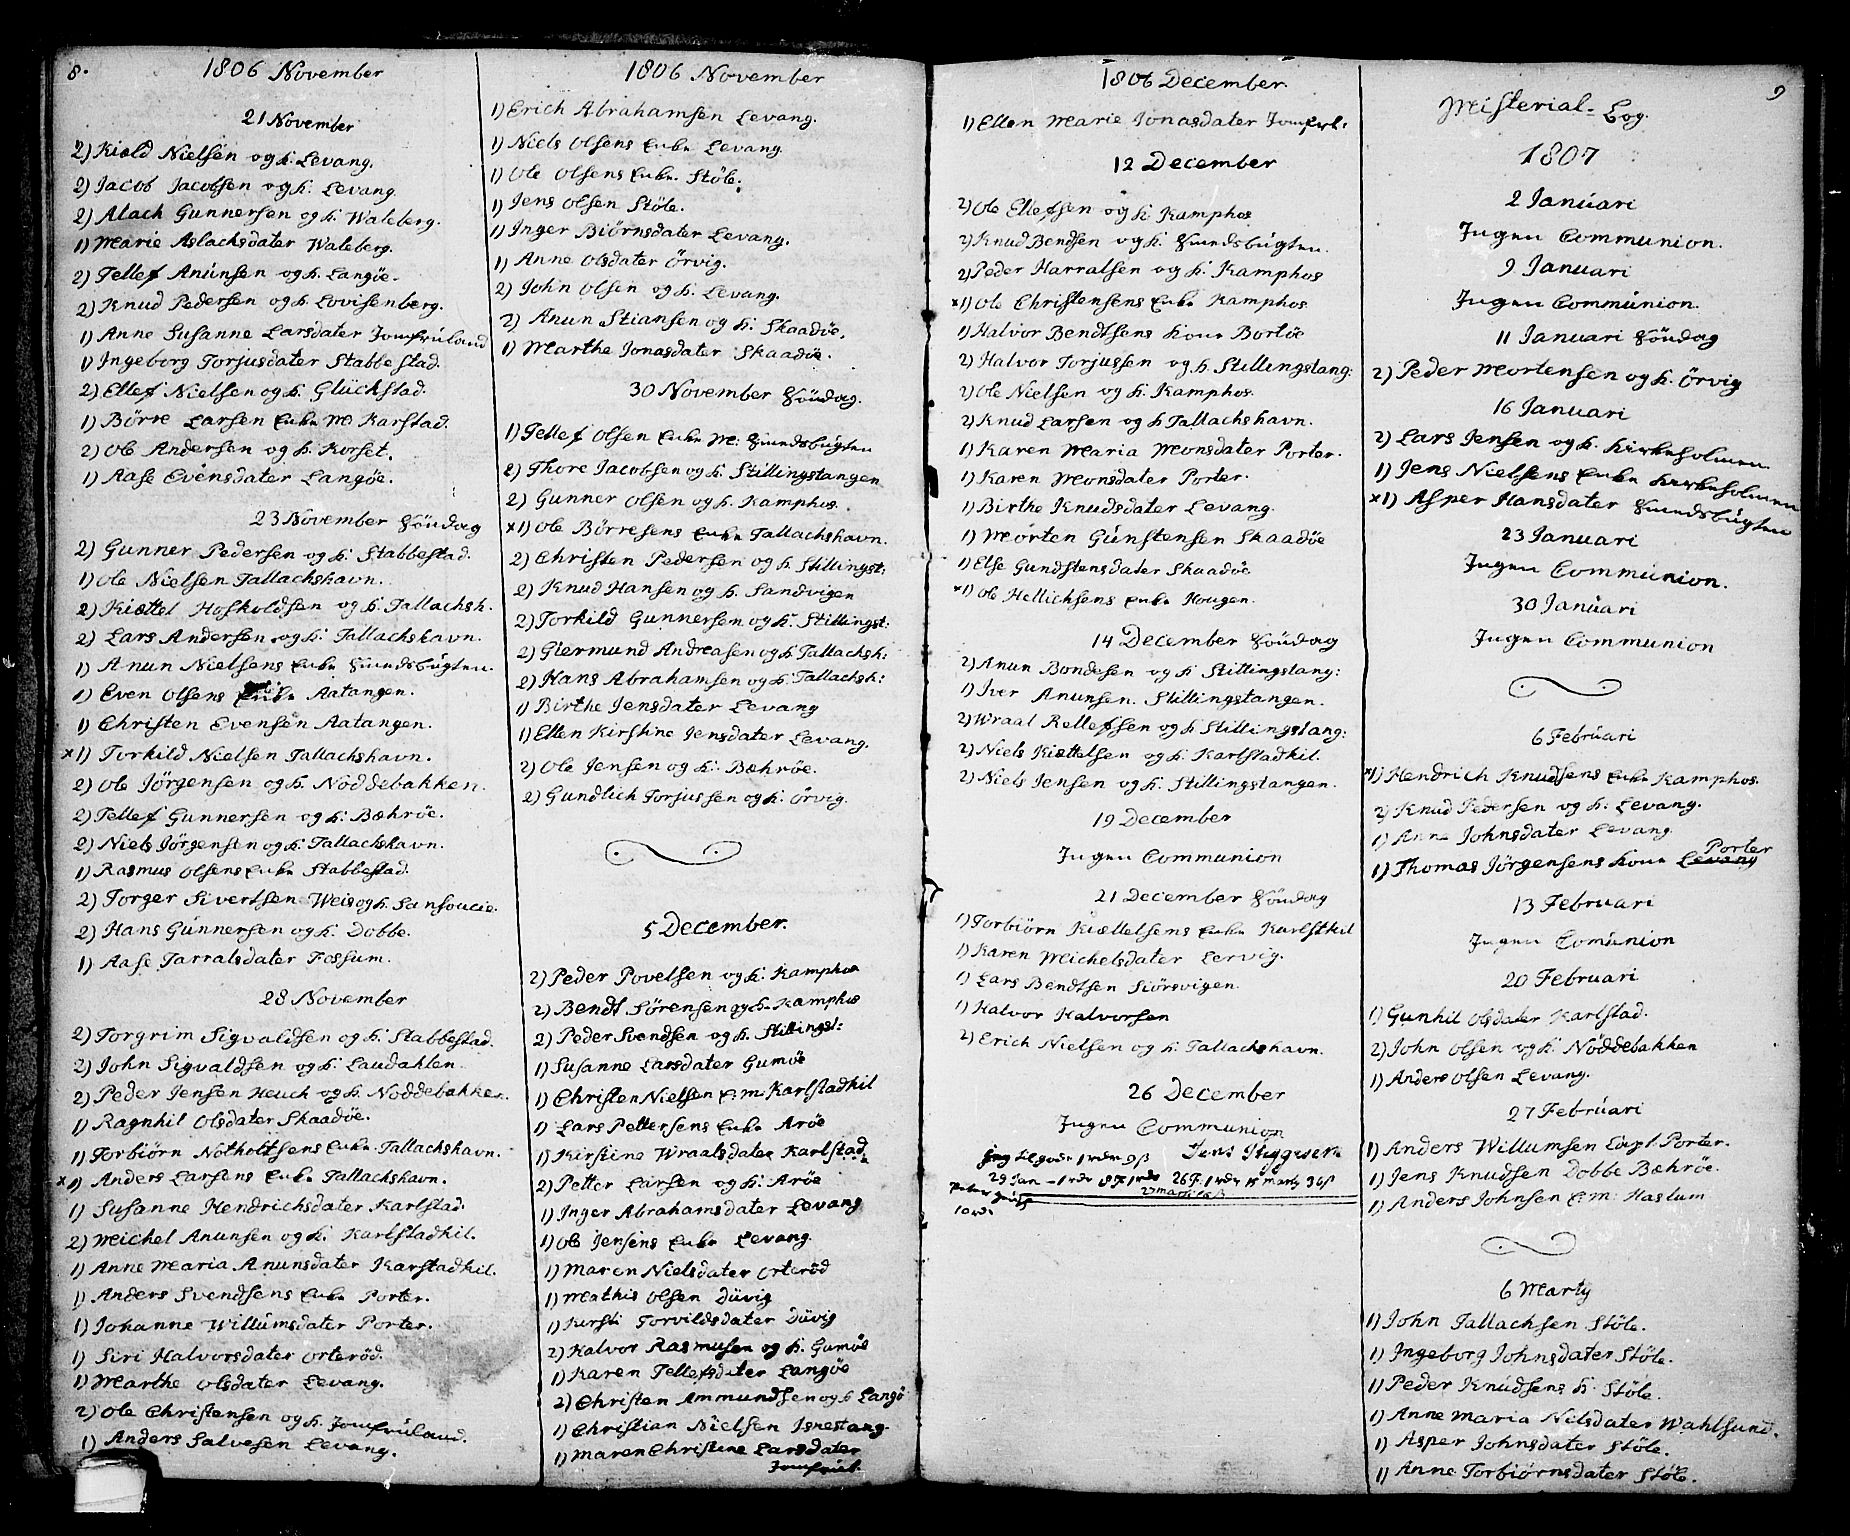 8.
1806 November
21 November
2) Kiæld Nielsen og h: Levang.
2) Jacob Jacobsen og h: Levang
2) Atach Gunnersen og h: Wateberg.
1) Marie Aslachsdater Wateberg.
2) Tellef Anúnsen og h: Langöe.
2) Knud Pedersen og h: Lovisenberg.
1) Anne Susanne Larsdater Jomfrúland
1) Ingeborg Torjusdater Stabbestad.
2) Ellef Nielsen og h: Glückstad.
1) Börre Larsen Enke M. Karstad.
2) Ole Andersen og h: Korset.
1) Aase Evensdater Langöe.
23 November Söndag
2) Gunner Pedersen og h: Stabbestad.
1) Ole Nielsen Tallachshavn.
2) Kiættel Hoskoldsen og h: Tallachsh.
2) Lars Andersen og h: Tallachshavn.
1) Anun Nielsens Enke Smedsbúgten.
1) Even Olsens Enke Aatangen.
1) Christen Evensen Aatangen.
x 1) Torkild Nielsen Tallachshavn.
2) Ole Jörgensen og h. Nöddebakken.
2) Tellef Gunnersen og h: Bæhröe.
2) Niels Jörgensen og h: Tallachshavn.
1) Rasmus Olsens Enke Stabbestad.
2) Torger Sivertsen Weis og h: Sansoucie.
2) Hans Gúnnersen og h: Dobbe.
1) Aase Tarralsdater Fossum.
28 November
2) Torgrim Sigvaldsen og h: Stabbestad.
2) John Sigvaldsen og h: Laudahlen.
2) Peder Jensen Heuch og h: Nöddebakken.
1) Ragnhil Olsdater Skaadöe.
1) Torbiörn Notholtsens Enke Tallachshavn.
x 1) Anders Larsens Enke Tallachshavn.
1) Susanne Hendrichsdater Karlstad.
2) Michel Anunsen og h: Karlstadkil.
1) Anne Maria Anunsdater Karstadkil.
1) Anders Svendsens Enke Porter.
1) Johanne Willumsdater Porter.
1) Siri Halvorsdater Orteröd.
1) Marthe Olsdater Levang.
2) Ole Christensen og h: Jomfrúland.
1) Anders Salvesen Levang.
1806 November
1) Erich Abrahamsen Levang.
1) Niels Olsens Enke Levang
1) Ole Olsens Enke Stöle.
1) Jens Olsen Stöle.
1) Inger Biörnsdater Levang.
1) Anne Olsdater Örvig.
2) John Olsen og h: Levang.
2) Anun Stiansen og h: Skaadöe.
1) Marthe Jonasdater Skaadöe.
30 November Söndag.
1) Tellef Olsen Enke M: Smedsbúgten
2) Thore Jacobsen og h: Stillingstangen
2) Gunner Olsen og h: Kamphos.
x 1) Ole Börresens Enke Tallachshavn.
2) Christen Pedersen og h: Stillingst:
2) Knud Hansen og h: Sandvigen
2) Torkild Gunnersen og h: Stillingst:
2) Giermund Andreasen og h: Tallachsh:
2) Hans Abrahamsen og h: Tallachsh:
1) Birthe Jensdater Levang
1) Ellen Kirstine Jensdater Levang.
2) Ole Jensen og h: Bæhröe.
2) Gundlich Torjussen og h: Örvig.
5 December.
2) Peder Povelsen og h: Kamphos
2) Bendt Sörensen og h: Kamphos
2) Peder Svendsen og h: Stillingst:
1) Susanne Larsdater Gumöe
1) Christen Nielsen E: m: Karlstadkil
1) Lars Pettersens Enke Aröe
1) Kirstine Wraalsdater Karlstad.
2) Petter Larsen og h: Aröe
1) Inger Abrahamsdater Levang
1) Ole Jensens Enke Levang
1) Maren Nielsdater Orteröd
1) Mathis Olsen Düvig
1) Kirsti Torvildsdater Düvig
2) Halvor Rasmusen og h: Gumöe
1) Karen Tellefsdater Langöe
2) Christen Ammundsen og h: Langö
1) Christian Nielsen Isnestang.
1) Maren Christine Larsdater
Jomfrúl.
1806 December
1) Ellen Marie Jonasdater Jomfrul:
12 December
2) Ole Ellefsen og h: Kamphos
2) Knud Bendsen og h: Smedsbúgten.
2) Peder Harralsen og h: Kamphos
x 1) Ole Christensens Enke Kamphos
1) Halvor Bendtsens Kone Bortöe
2) Halvor Torjussen og h: Stillingstang:
2) Ole Nielsen og h: Kamphos.
2) Knud Larsen og h: Tallachshavn.
1) Karen Maria Monsdater Porter.
1) Karen Monsdater Porter.
1) Birthe Knudsdater Levang.
1) Morten Gúnstensen Skaadöe
1) Else Gundstensdater Skaadöe
x 1) Ole Hellichsens Enke Hougen.
14 December Söndag
2) Anun Bondesen og h: Stillingstang:
1) Iver Anunsen. Stillingstangen.
2) Wraal Rellefsen og h: Stillingstang:
2) Niels Kiættelsen og h: Karlstadkil.
2) Niels Jensen og h: Stillingstangen.
19 December
Ingen Communion
21 December Söndag
1) Torbiörn Kiættelsens Enke Karlstkil
1) Karen Michelsdater Lervig.
1) Lars Bendtsen Siörsvigen.
1) Halvor Halvorsen
2) Erich Nielsen og h: Tallachshavn.
26 December
Ingen Communion
Jens Styggesen
9
Misterial-Bog.
1807
2 Januari
Ingen Communion.
9 Januari
Ingen Communion.
11 Januari Söndag
2) Peder Mortensen og h: Örvig
16 Januari
2) Lars Jensen og h. Kirkeholmen
1) Jens Nielsens Enke Kirkeholmen
x 1) Asper Hansdater Smedsbúgten
23 Januari
Ingen Communion.
30 Januari
Ingen Communion
6 Februari
x 1) Hendrich Knudsens Enke Kamphos.
2) Knud Pedersen og h: Levang.
1) Anne Johnsdater Levang
Porter
1) Thomas Jörgensens Kone Levang
13 Februari
Ingen Comúnion
20 Februari
1) Gunhil Olsdater Karlstad.
2) John Olsen og h: Nöddebakken
1) Anders Olsen Levang.
27 Februari
1) Anders Willumsen Capl. Porter.
1) Jens Knudsen Dobbe Bæhröe.
1) Anders Johnsen E: m: Haslum
6 Marty
1) John Tallachsen Stöle.
1) Ingeborg Johnsdater Stöle.
1) Peder Knudsens h: Stöle.
1) Anne Maria Nilsdater Wahlsund.
1) Asper Johnsdater Stöle.
1) Anne Torbiörnsdater Stöle.